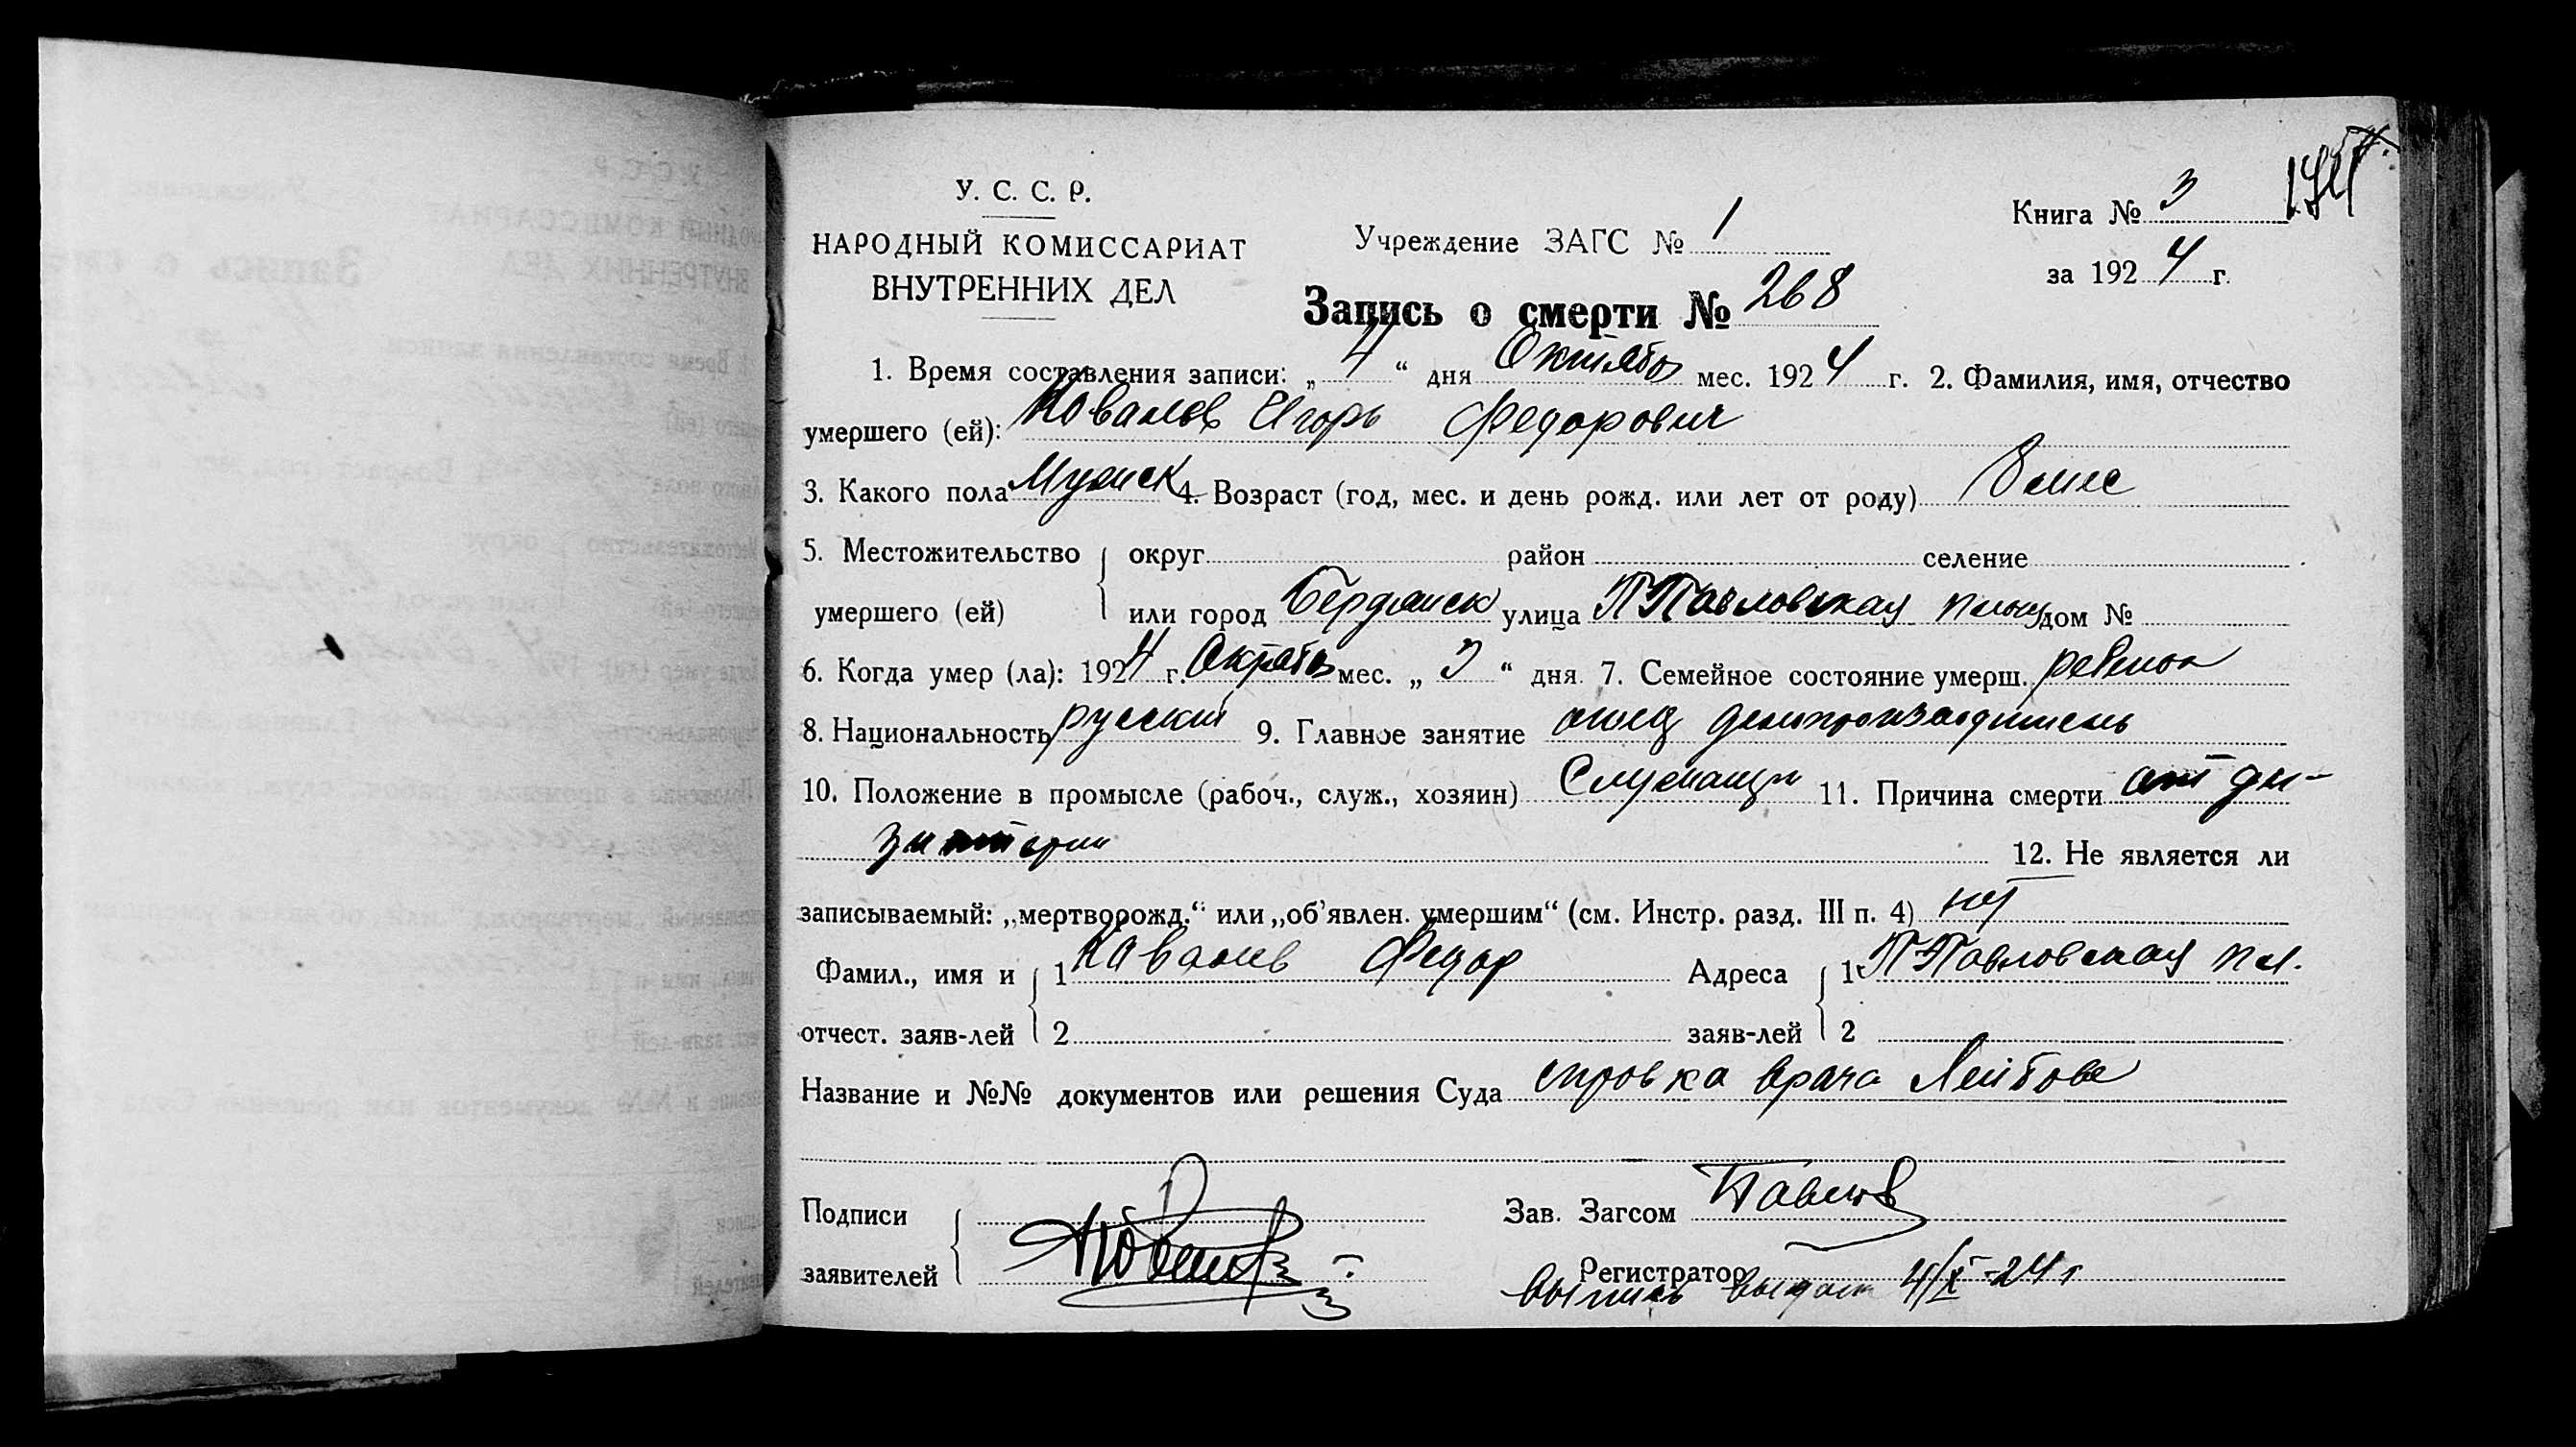 У. С. С. Р.
НАРОДНЫЙ КОМИССАРИАТ
ВНУТРЕННИХ ДЕЛ
Учреждение ЗАГС № 1
Книга № 3
за 1924 г.
Запись о смерти № 268
1. Время составления записи: „4“ дня Октября мес. 1924 г. 2. Фамилия, имя, отчество
умершего (ей): Ковалев Игорь Федорович
3. Какого пола Мужск 4. Возраст (год, мес. и день рожд. или лет от роду) 8 мес
5. Местожительство округ район селение
умершего (ей) или город Бердянск улица П Павловская площ дом №
6. Когда умер (ла): 1924 г. Октябр мес. „3“ дня 7. Семейное состояние умерш. ребенок
8. Национальность русский 9. Главное занятие отец делопроизводитель
10. Положение в промысле (рабоч., служ., хозяин) Служащий 11. Причина смерти от ди-
зинтерии
12. Не является ли
записываемый: „мертворожд.“ или „об’явлен. умершим“ (см. Инстр. разд. III п. 4) нет
Фамил., имя и 1 Ковалев Федор Адреса 1 П Павловская пл.
отчест. заяв-лей 2 заяв-лей 2
Название и №№ документов или решения Суда справка врача
Подписи
заявителей
Зав. Загсом
Регистратор
Выпись выдан 4/X-24 г